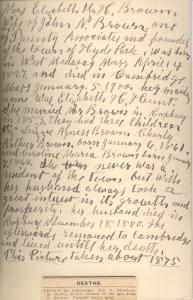 Mrs Elizabeth H. Brown,
Wife of John N. Brown, one
Twenty Associates and founders
of the town of Hyde Park, was born
in West Medway Mass April 4
1827, and died in Cambridge
Mass January 5 1900. her maiden
name was Elizabeth H. Hunt.
She married Mr Brown in Roxbury
in 1853, they had three children
Louise Agnes Brown, Charles
Sidney Brown, born January 6, 1861.
and Caroline Maria Brown born January
1864. The lady never was a
resident of the town but with
her husband always took a
great interest in its growth and
prosperity. her husband died in
Roxbury November 18 1880. She
afterward removed to Cambridge
and lived until her death.
This Picture taken about 1875
DEATHS.